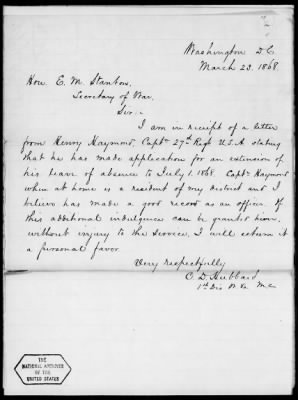 Washington D.C.
March 23. 1868.
Hon. E. M. Stanton,
Secretary of War,
Sir:
I am in receipt of a letter
from Henry Haymond, Capt. 27th Regt U.S.A. stating
that he has made application for an extension of
his leave of absence to July 1. 1868. Capt. Haymond
when at home is a resident of my district and I
believe has made a good record as an officer. If
this additional indulgence can be granted him,
without injury to the service, I will esteem it
a personal favor.
Very respectfully
C. D. Hubbard
1st Dis W. Va. M.C.
THE
NATIONAL ARCHIVES
OF THE
UNITED STATES